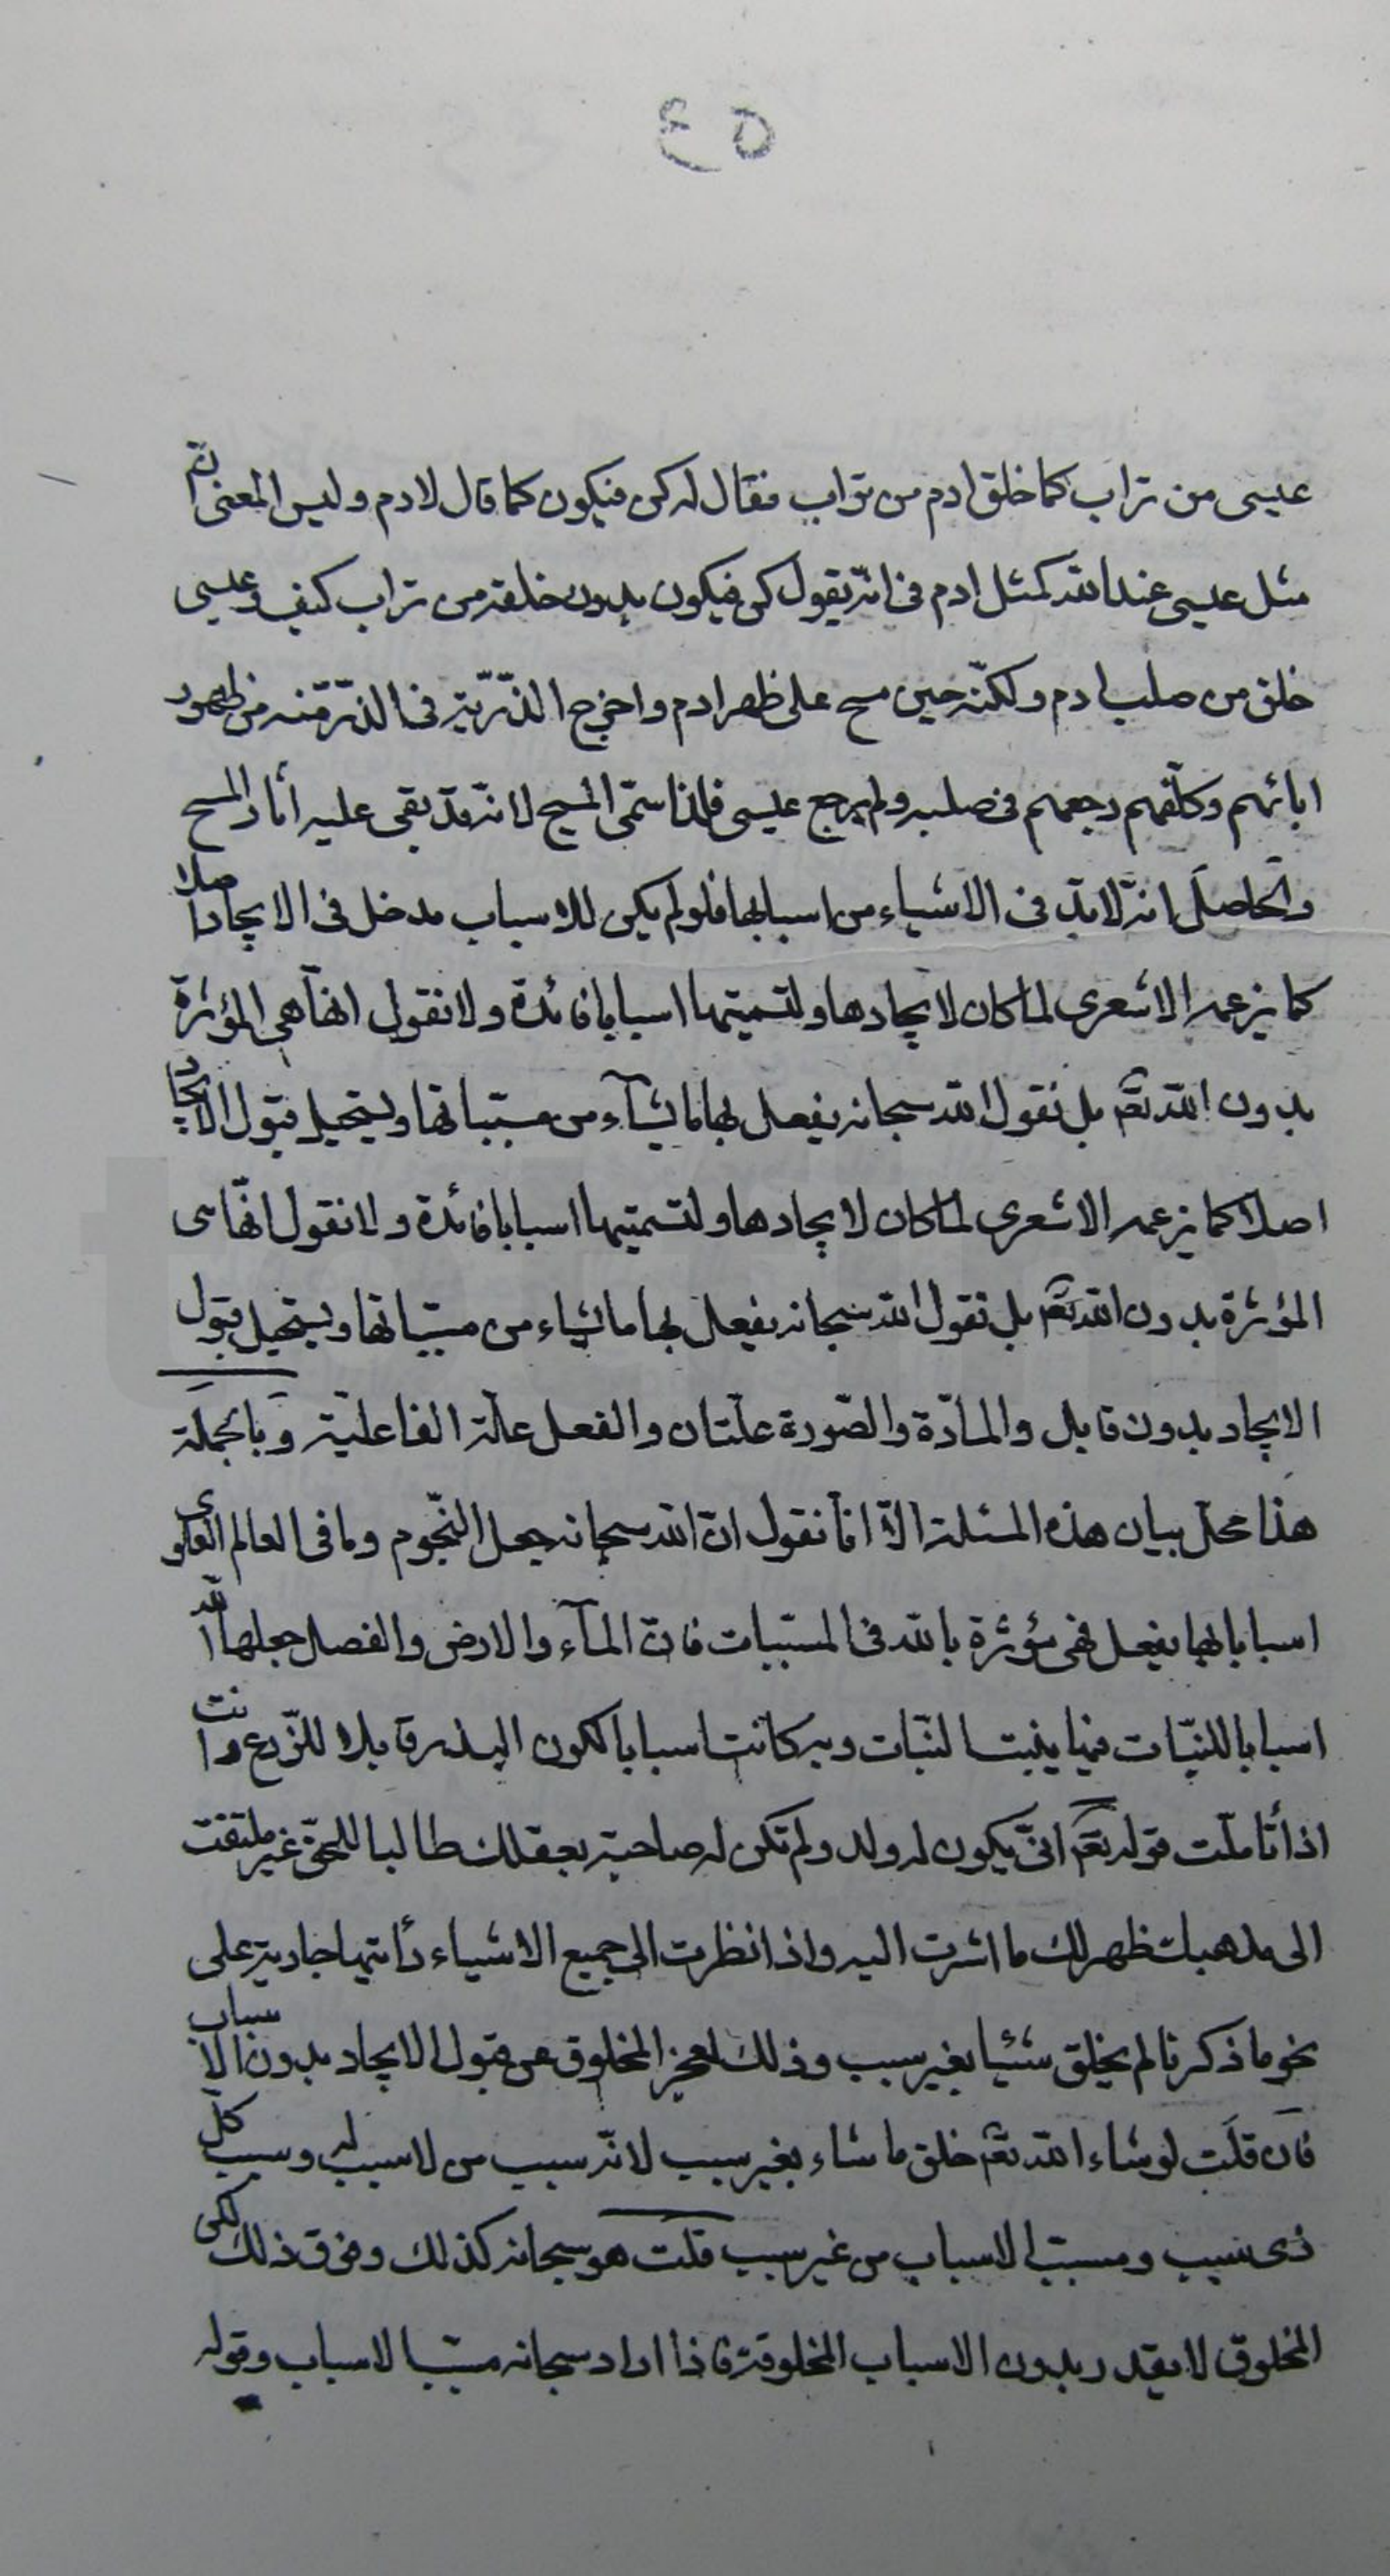 ٤٥
عيسى من تراب كما خلق ادم من تراب فقال له كن فيكون كما قال لادم وليس المعنى انّ
مثل عيسى عند الله كمثل ادم فى انّه يقول كن فيكون بدون خلقه من تراب كيف وعيسى
خلق من صلب ادم ولكنّه حين مسح على ظهر ادم واخرج الذّرّيّة فى الذّر منه من ظهور
ابائهم وكلّفهم رجعهم فى صلبه ولم يرجع عيسى فلذا سمّى المسيح لانّه قد بقى عليه اثار المسح
والحاصل انّه لا بدّ فى الاشياء من اسبابها فلو لم يكن للاسباب مدخل فى الايجاد اصلا
كما يزعمه الاشعرى لما كان لايجادها ولتسميتها اسبابا فائدة ولا نقول انها هى المؤثرة
بدون الله تعم بل نقول الله سبحانه يفعل بها ما يشآء من مسبّباتها ويستحيل قبول الايجاد
اصلا كما يزعمه الاشعرى لما كان لايجادها ولتسميتها اسبابا فائدة ولا نقول انّها هى
المؤثرة بدون الله تعم بل نقول الله سبحانه يفعل بها ما يشاء من مسبباتها ويستحيل قبول
الايجاد بدون قابل والمادّة والصّورة علّتان والفعل علّة الفاعلية وبالجملة
هذا محل بيان هذه المسئلة الّا انا نقول انّ الله سبحانه جعل النّجوم وما فى العالم العلوى
اسبابا بها يفعل فهى مؤثرة بالله فى المسببات فان المآء والارض والفصل جعلها الله
اسبابا للنبّات فيها ينبت النّبات وبه كانت اسبابا لكون البذر قابلا للزّرع وانت
اذا تأملّت قوله تعم انّى يكون له ولد ولم تكن له صاحبة بعقلك طالبا للحقّ غير ملتفت
الى مذهبك ظهر لك ما اشرت اليه واذا نظرت الى جميع الاشياء رأيتها جارية على
نحو ما ذكرنا لم يخلق شئيا بغير سبب وذلك لعجز المخلوق عن قبول الايجاد بدون الاسباب
فان قلت لو شاء الله تعم خلق ما شاء بغير سبب لانّه سبب من لا سبب له وسبب كلّ
ذى سبب ومسبب الاسباب من غير سبب قلت هو سبحانه كذلك وفوق ذلك لكن
المخلوق لا يقدر بدون الاسباب المخلوقة فاذا اراد سبحانه مسبب الاسباب وقوله